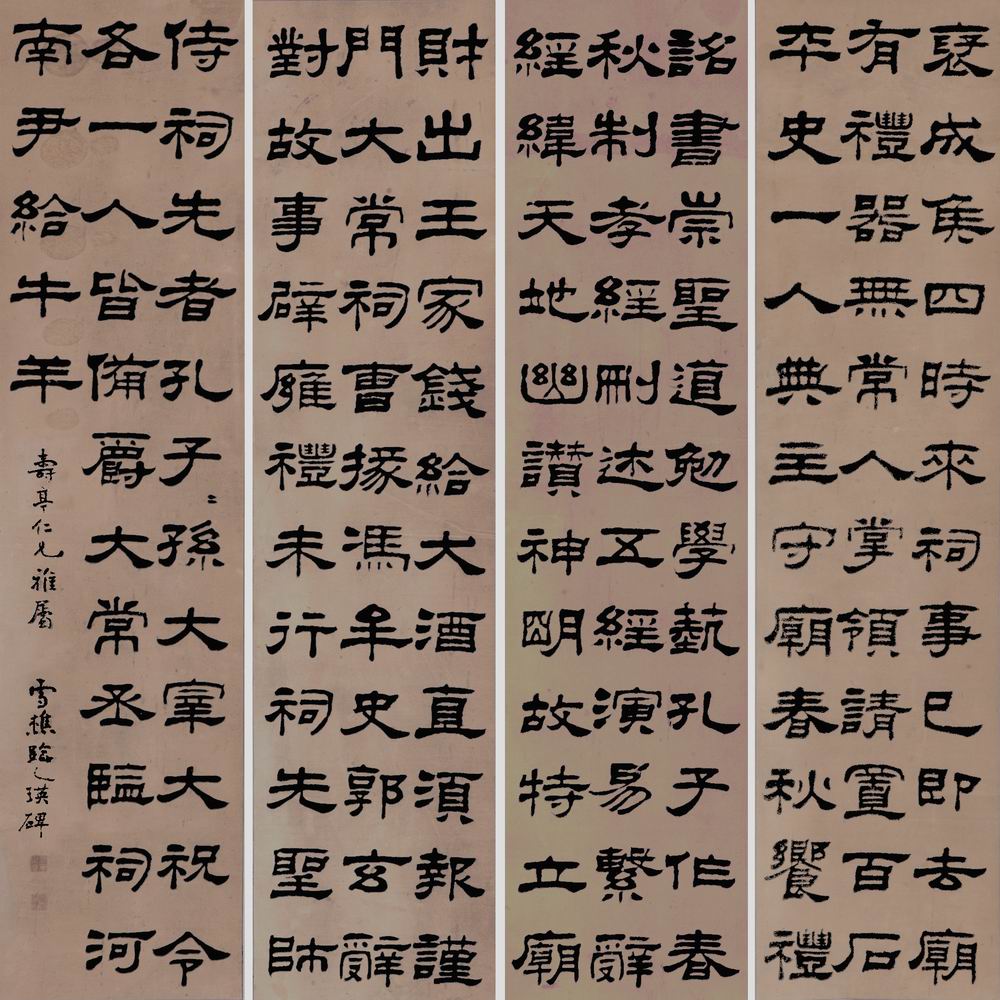 襃成矦四時來祠事已即去廟
有禮器無常人掌領請置百石
卒史一人典主守廟春秋饗禮
詔書崇聖道勉學蓺孔子作春
秋制孝經刪述五經演易繫辭
經緯天地幽讚神明故特立廟
財出王家錢給大酒直須報謹
門大常祠曹掾馮牟史郭玄辭
對故事辟廱禮未行祠先聖師
侍祠先者孔子〻孫大宰大祝令
各一人皆備爵大常丞監祠河
南尹給牛羊
壽亭仁兄雅屬
雪樵臨乙瑛碑